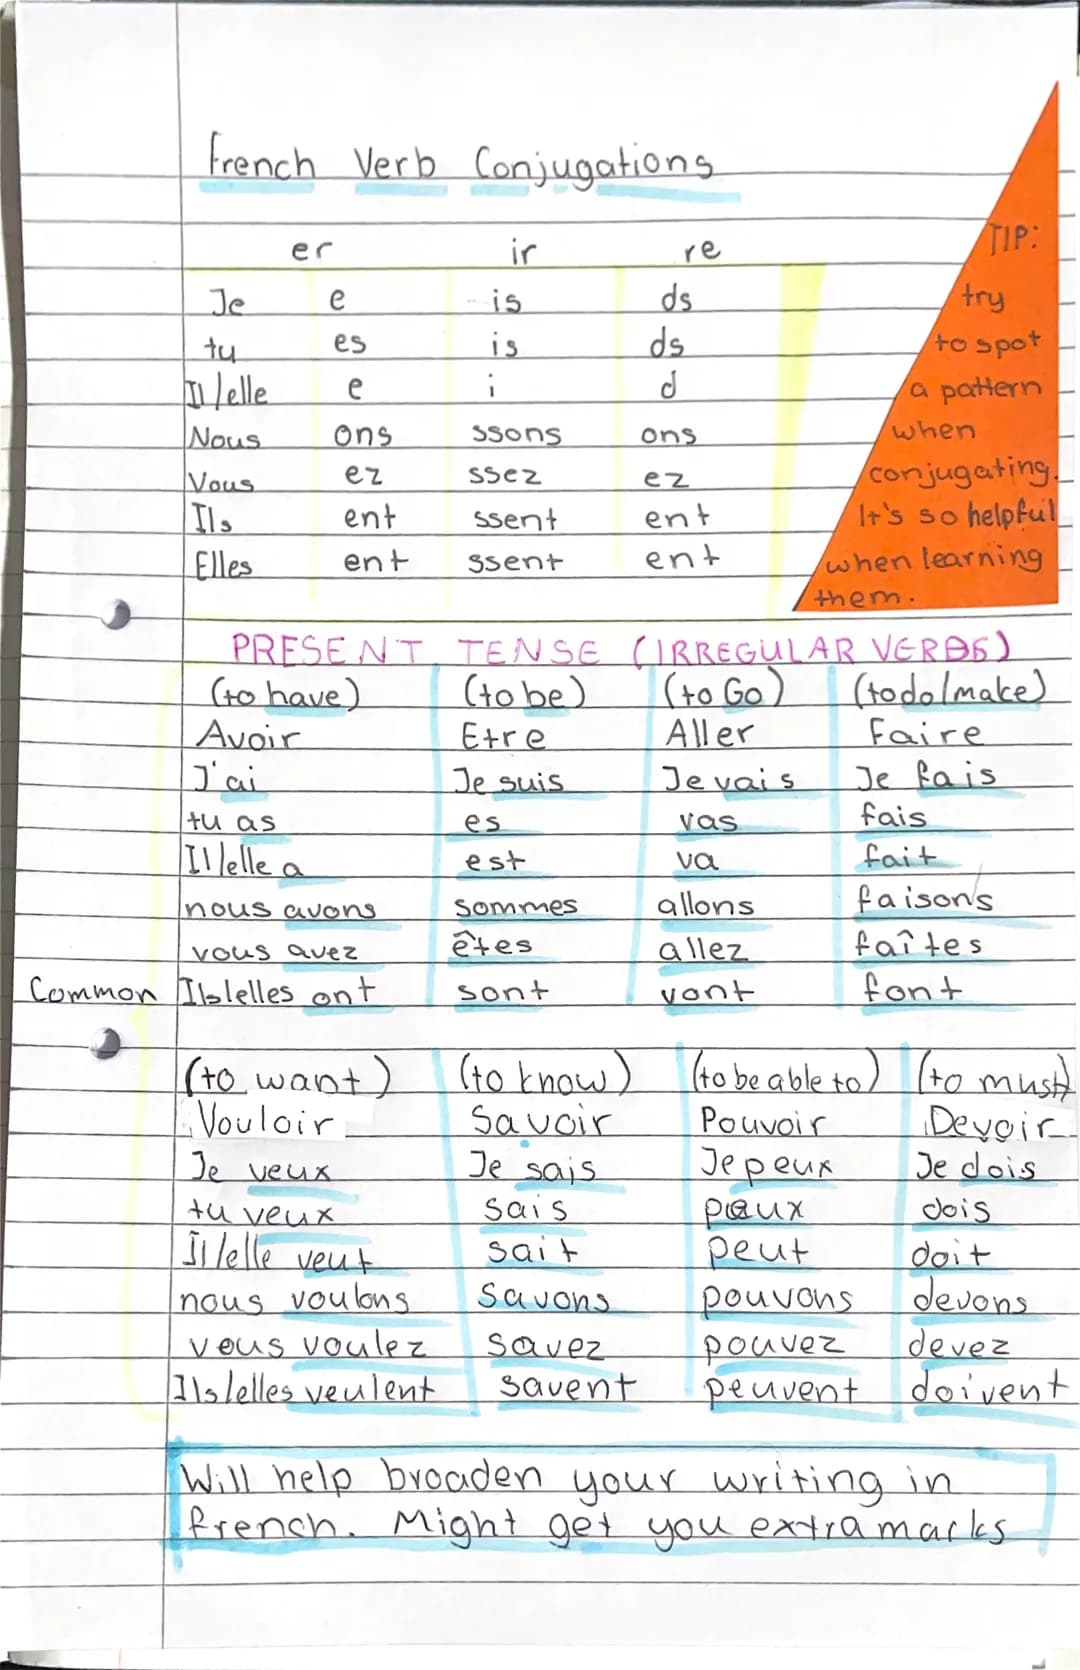 French Verb Conjugations
er ir re
Je e is ds
tu es is ds
Il/elle e i d
Nous ons ssons ons
Vous ez ssez ez
Ils ent ssent ent
Elles ent ssent ent
TIP:
try
to spot
a pattern
when
conjugating.
It's so helpful
when learning
them.
PRESENT TENSE (IRREGULAR VERBS)
(to have) (to be) (to Go) (to do/make)
Avoir Etre Aller Faire
J'ai Je suis Je vais Je fais
tu as es vas fais
Il/elle a est va fait
nous avons sommes allons faisons
vous avez êtes allez faîtes
Common Ils/elles ont sont vont font
(to want) (to know) (to be able to) (to must)
Vouloir Savoir Pouvoir Devoir
Je veux Je sais Je peux Je dois
tu veux sais peux dois
Il/elle veut sait peut doit
nous voulons savons pouvons devons
vous voulez savez pouvez devez
Ils/elles veulent savent peuvent doivent
Will help broaden your writing in
french. Might get you extra marks